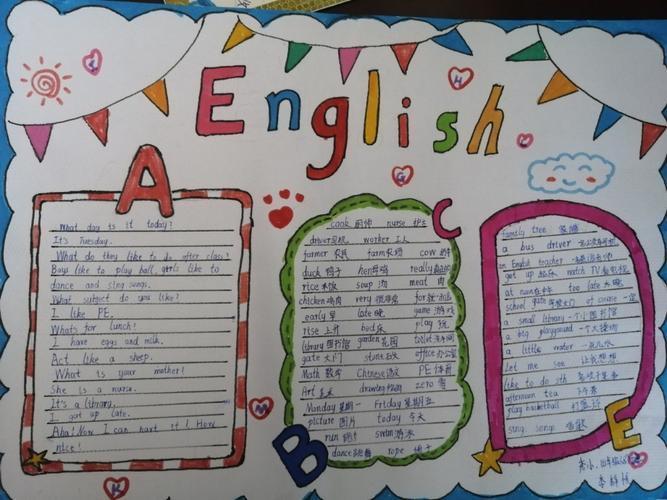 English
A
What day is it today?
It's Tuesday.
What do they like to do after class?
Boys like to play ball, girls like to
dance and sing songs.
What subject do you like?
I like PE.
Whats for lunch?
I have eggs and milk.
Act like a sheep.
What is your mother?
She is a nurse.
It's a library.
I got up late.
Aha! Now I can hart it! How
nice!
C
cook 厨师 nurse 护士
driver司机 worker 工人
farmer 农民 farm农场 cow 奶牛
duck 鸭子 hen母鸡 really
rice 米饭 soup 汤 meat 肉
chicken鸡肉 very 非常 for
early 早 late 晚 game 游戏
rise 上升 bud play 玩
library 图书馆 garden 花园 toilet
gate 大门 office 办公室
Math 数学 Chinese 语文 PE 体育
Art zero 零
Monday 星期一 Friday 星期五
picture 图片 today 今天
run 跑步 swim游泳
dance跳舞 rope 绳子
B
family tree
a bus driver
an English teacher
get up 起床 watch TV 看电视
at noon在中午 too late 太晚
school gate 学校大门 of course 一定
a small library 一个小图书馆
a big playground 一个大操场
a little water 一点儿水
Let me see 让我想想
like to do sth
afternoon tea 下午茶
play basketball 打篮球
sing songs 唱歌
E